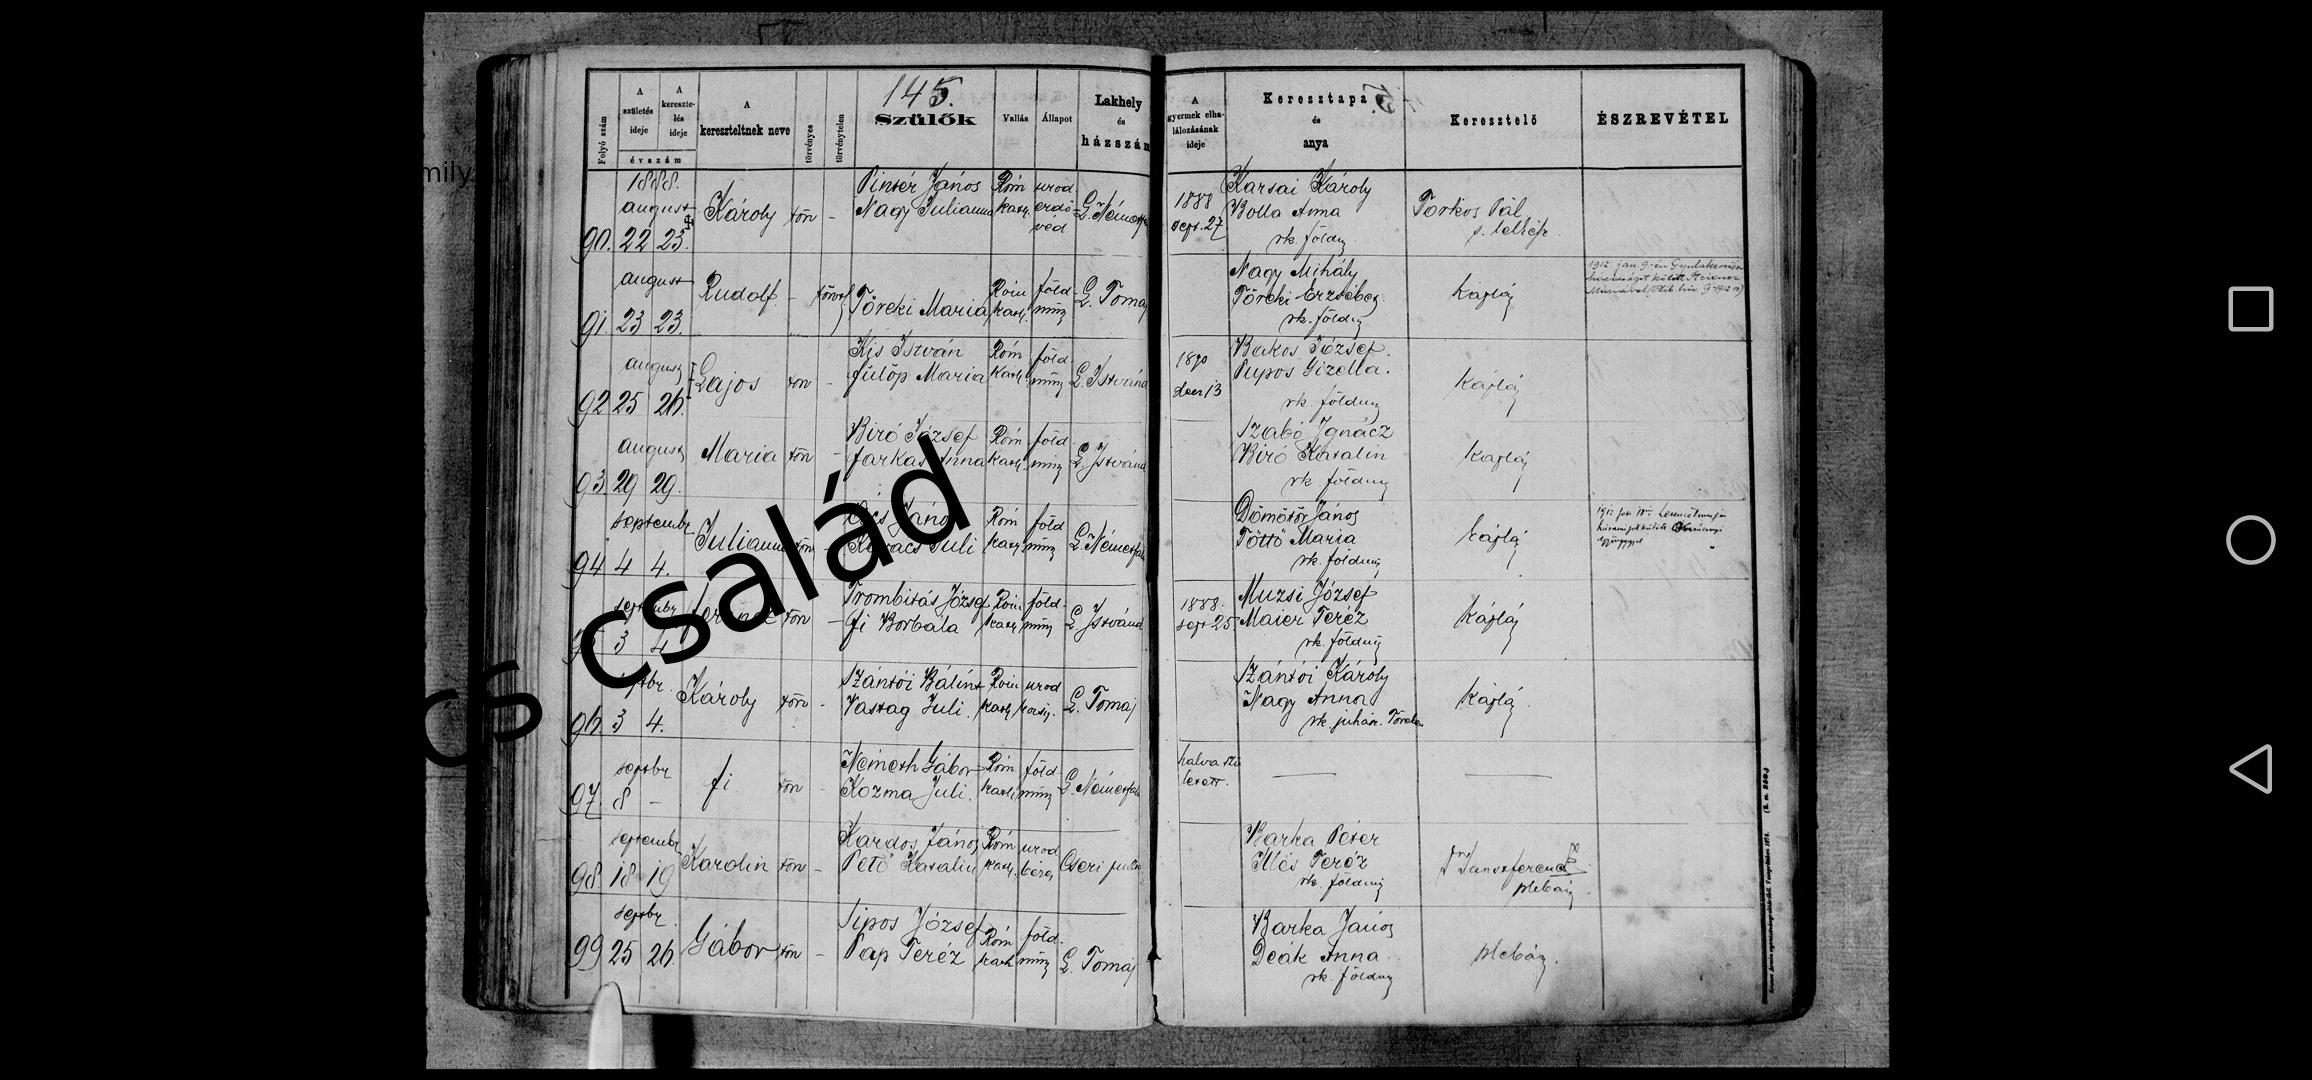 145.
Folyó szám
A születés ideje
A keresztelés ideje
évszám
A kereszteltnek neve
törvényes
törvénytelen
Szülők
Vallás
Állapot
Lakhely és házszám
A gyermek elhalálozásának ideje
Keresztapa és anya
Keresztelő
ÉSZREVÉTEL
1888.
august
90. 22 23.
Károly
tön -
Pintér János
Nagy Julianna
Róm kath.
urod erdővéd
1888 sept. 27
Karsai Károly
Bolla Anna
rk. földm
Torkos Pál
august
91. 23 23.
Rudolf
-
Töreki Maria
Róm kath.
föld míns
L. Tomaj
Nagy Mihály
Töreki Erzsébet
rk. földm
Káplán
august
92 25 26.
Lajos
tön -
Kis István
Fülöp Maria
Róm kath.
föld míns
L. Istvánd
1890 decz 13
Bakos József.
Pupos Gizella.
rk. földm
Káplán
august
93. 29 29.
Maria
tön -
Biró József
Farkas Anna
Róm kath.
föld míns
L. Istvánd
Szabó Ignácz
Biró Katalin
rk. földm
Káplán
septembr
94 4 4.
Julianna
tön -
Kovács Juli
Róm kath
föld míns
L. Németfalu
Dömötör János
Töttö Maria
rk. földm
Káplán
septembr
3 4
tön
Trombitás József
Fi Borbála
Róm kath
föld míns
L. Istvánd
1888. sept 25
Muzsi József
Maier Teréz
rk. földm
Káplán
96. 3 4.
Károly
tön -
Szántói Bálint
Vastag Juli.
Róm kath
urod kocsis.
L. Tomaj
Szántói Károly
Nagy Anna
rk. juhász
Káplán
septbr
97 8 -
fi
tön -
Németh Gábor
Kozma Juli.
Róm kath
föld míns
L. Németfalu
halva született.
septembr
98. 18 19
Karolin
tön -
Kardos János
Pető Katalin
Róm kath.
urod béres
Cseri puszta
Barka Péter
Illés Teréz
rk. földm
plébán.
septbr.
99 25 26.
Gábor
tön -
Sipos József
Pap Teréz
Róm kath
föld míns
L. Tomaj
Barka János
Deák Anna
rk. földm
plébán.
mily
cs család